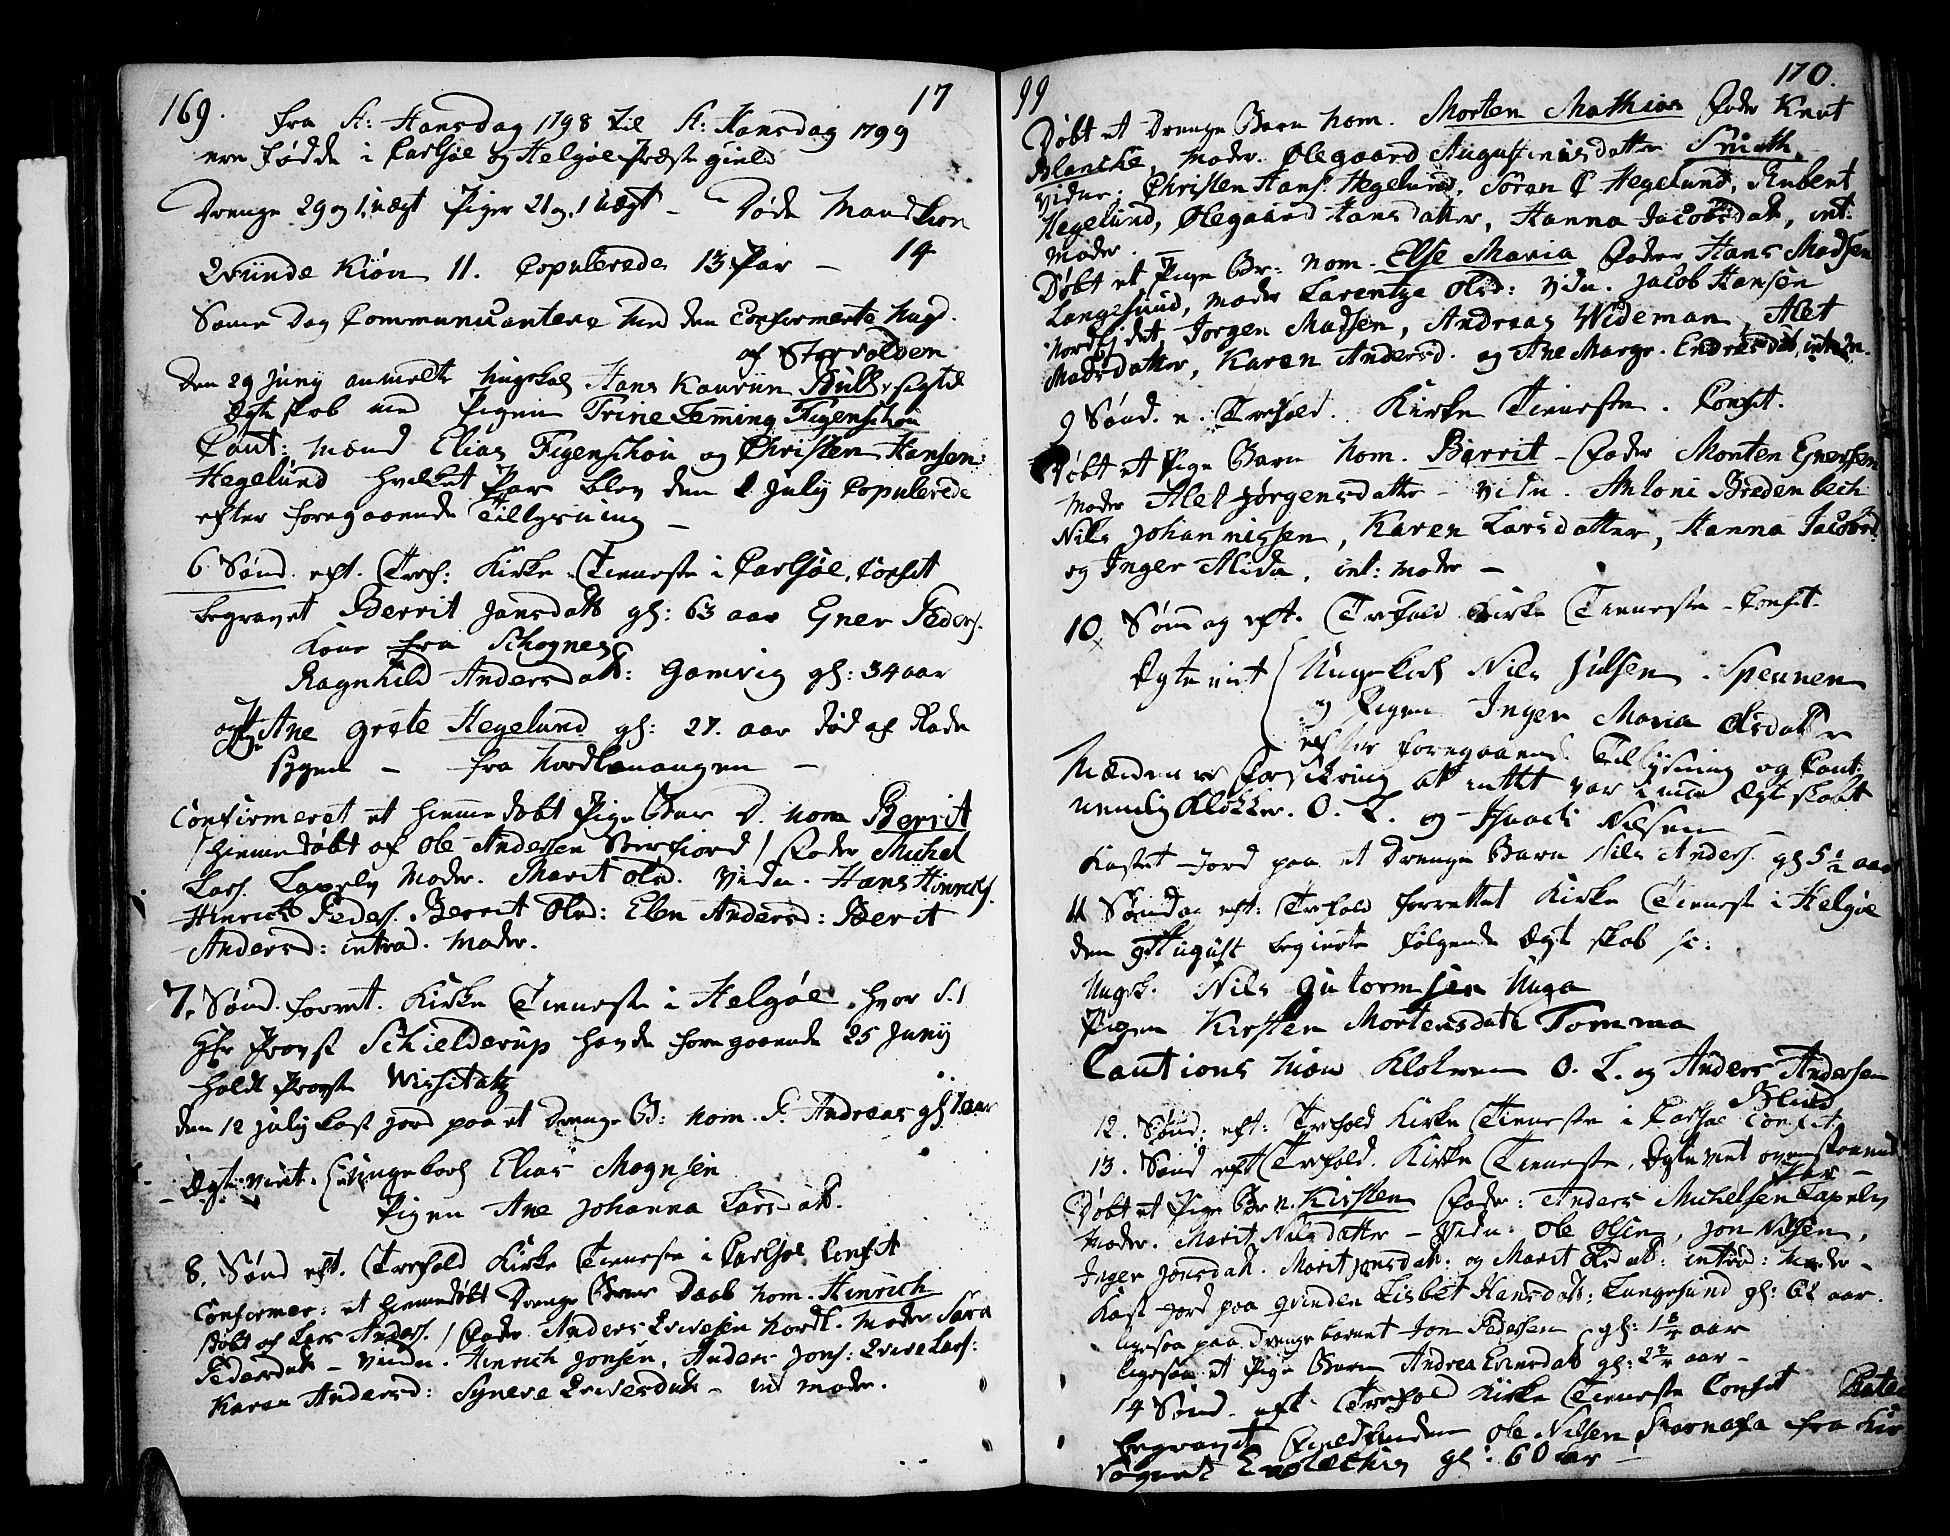 169. 17
fra St: Hansdag 1798 til St: Hansdag 1799
ere fødde i Carlsøe og Helgøe Præste gield
Drenge 29 og 1 uægt Piger 21 og 1 uægt - Døde Mand kion
14
Qvinde Kiøn 11. Copulerede 13 Par -
Samme Dag Communicantere med den Confirmerte Ungd.
af Storvolden
Den 29 Juny anmelte Ungekarl Hans Kauriin Bull sig til
Ægteskab med Pigen Trine Lemming Figenschou
Caut: Mænd Elias Figenschou og Christen Hansen
Hegelund hvilket Par blev den 2 July Copulerede
efter foregaaende Tillysning -
6 Sønd. eft. Tref: Kirke Tieneste i Carlsøe, Confit
begravet Berrit Jansdatt gl: 63 aar Ener Peders.
Kone fra Schognes
Ragnhild Andersdatt: Gamvig gl: 34 aar
og Ane Grete Hegelund gl: 27. aar død af Rade
sygen - fra Nordlenangen -
Confirmeret et hiemmedøbt Pige Barn D. nom Berrit
/ hiemmedøbt af Ole Andersen Bierfiord / Fader Michel
Lars. Lapely Moder. Marit Olsd. Vidn. Hans Hinrichs.
Hinrich Peders. Berrit Olsd: Elen Andersd: Berit
Andersd: introd. Moder.
7. Sønd. forret. Kirke Tieneste i Helgøe, hvor S.T
Hr Provst Schielderup havde foregaaende 25 Juny
holdt Provste Vissitatz
den 12 July kast Jord paa et Drenge B: nom. P. Andreas gl 1 aar
Ægteviet. Ungekarl Elias Mognsen
Pigen Ane Johanna Larsdatt.
8. Sønd eft. Trefold Kirke Tieneste i Carlsøe Confit
Confirmer: et hiemmedøbt Drenge Barns Daab nom. Hinrich
/ døbt af Lars Anders. / Fader Anders Iversen Nordl. Moder Sara
Pedersdatt - Vidn. Hinrich Jonsen, Anders Jons: Iver Lars:
Karen Andersd: Syneve Iversdatt - int Moder.
99 170.
Døbt et Drenge Barn nom. Morten Mathias Fader Knut
Blancke, Moder. Ølegaard Augustinusdatter Smith,
vidne. Christen Hans. Hegelund, Søran C Hegelund, Rubent
Hegelund, Ølegaard Hansdatter, Hanna Jacobsdatt, int:
Moder.
Døbt et Pige Br: nom. Else Maria Fader Hans Madsen
Langesund, Moder Larentze Olsd: Vidn. Jacob Hansen
Nordejdet, Jorgen Madsen, Andreas Wideman, Alet
Madsdatter, Karen Andersd. og Ane Margr. Endresdat, int. M.
9 Sønd. e. Trefold. Kirke Tieneste. Confit.
Døbt et Pige Barn nom. Berrit - Fader Morten Enersen
Moder Alet Jørgensdatter - Vidn. Antoni Bredenbech
Nils Johannissen, Karen Larsdatter, Hanna Jacobsd.
og Inger Alida, int: Moder -
10 Søndag eft. Trefold Kirke Tieneste - Confit.
Ægteviet Ungekarl Nils Julsen. Spennen
og Pigen Inger Maria Olsdatter
efter foregaaende Tillysning og Caut:
Mændenes Forsikring att intet var imod Ægteskabt
nemlig Klokker. O. L. og Isaach Nilsen
Kastet Jord paa et Drenge Barn Nils Anders. gl 5 1/2 aar
11 Søndag eft: Trefold forrettet Kirke Tieneste i Helgøe
den 9 August begierte følgende Ægteskab sc:
Ungk. Nils Gutormsen Unga
Pigen Kirsten Mortensdatt Tomma
Cautions Mæn Klokeren O. L. og Anders Andersen
Blind
12. Sønd: eft: Trefold Kirke Tieneste i Carlsøe Confit
13. Sønd eft Trefold. Kirke Tieneste, Ægteviet ovenstaaende
Par -
Døbt et Pige Br n. Kirsten Fader: Anders Michelsen Lapely
Moder. Marit Nilsdatter - Vidn: Ole Olsen, Jon Nilsen,
Inger Jonsdatt. Marit Jonsdatt: og Marit Olsdatt: introd: Moder -
Kast Jord paa Qvinden Lisbet Hansdatt: Langesund gl: 62 aar.
ligesaa paa Drengebarnet Jon Pedersen gl: 1 3/4 aar
ligesaa et Pige Barn Andrea Enersdatt gl: 2 3/4 aar -
14 Sønd. eft. Trefold Kirke Tieneste Confit
begravet Ole Nilsen fra
gl: 60 aar -